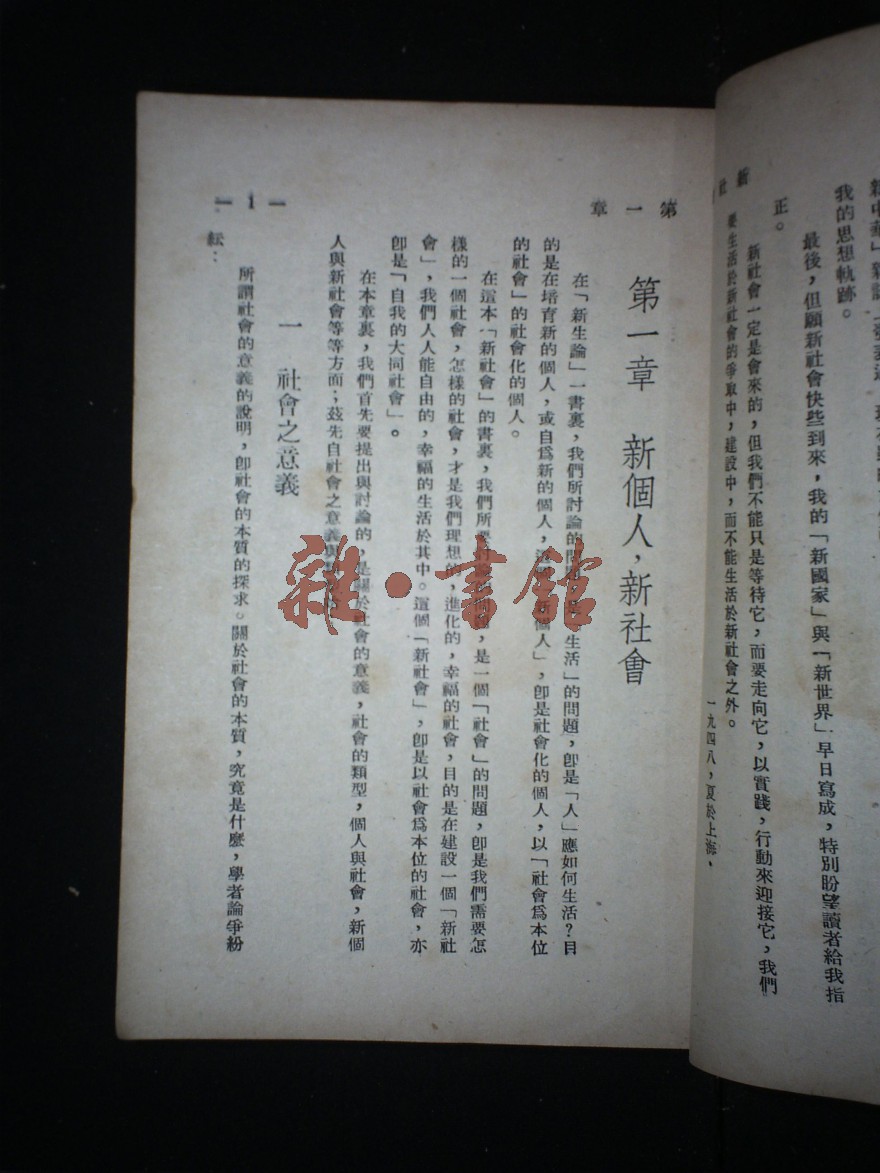 我的思想軌跡。
最後,但願新社會快些到來,我的「新國家」與「新世界」早日寫成,特別盼望讀者給我指
正。
新社會一定是會來的,但我們不能只是等待它,而要走向它,以實踐,行動來迎接它,我們
要生活於新社會的爭取中,建設中,而不能生活於新社會之外。
一九四八,夏於上海,
第一章
第一章 新個人,新社會
在「新生論」一書裏,我們所討論的問題,是「生活」的問題,卽是「人」應如何生活?目
的是在培育新的個人,或自爲新的個人,這「新個人」,卽是社會化的個人,以「社會爲本位
的社會」的社會化的個人。
在這本「新社會」的書裏,我們所要討論的問題,是一個「社會」的問題,卽是我們需要怎
樣的一個社會,怎樣的社會,才是我們理想的,進化的,幸福的社會,目的是在建設一個「新社
會」,我們人人能自由的,幸福的生活於其中。這個「新社會」,卽是以社會爲本位的社會,亦
卽是「自我的大同社會」。
在本章裏,我們首先要提出與討論的,是關於社會的意義,社會的類型,個人與社會,新個
人與新社會等等方面;茲先自社會之意義
一 社會之意義
所謂社會的意義的說明,卽社會的本質的探求。關於社會的本質,究竟是什麽,學者論爭紛
紜:
— 1 —
雜·書館